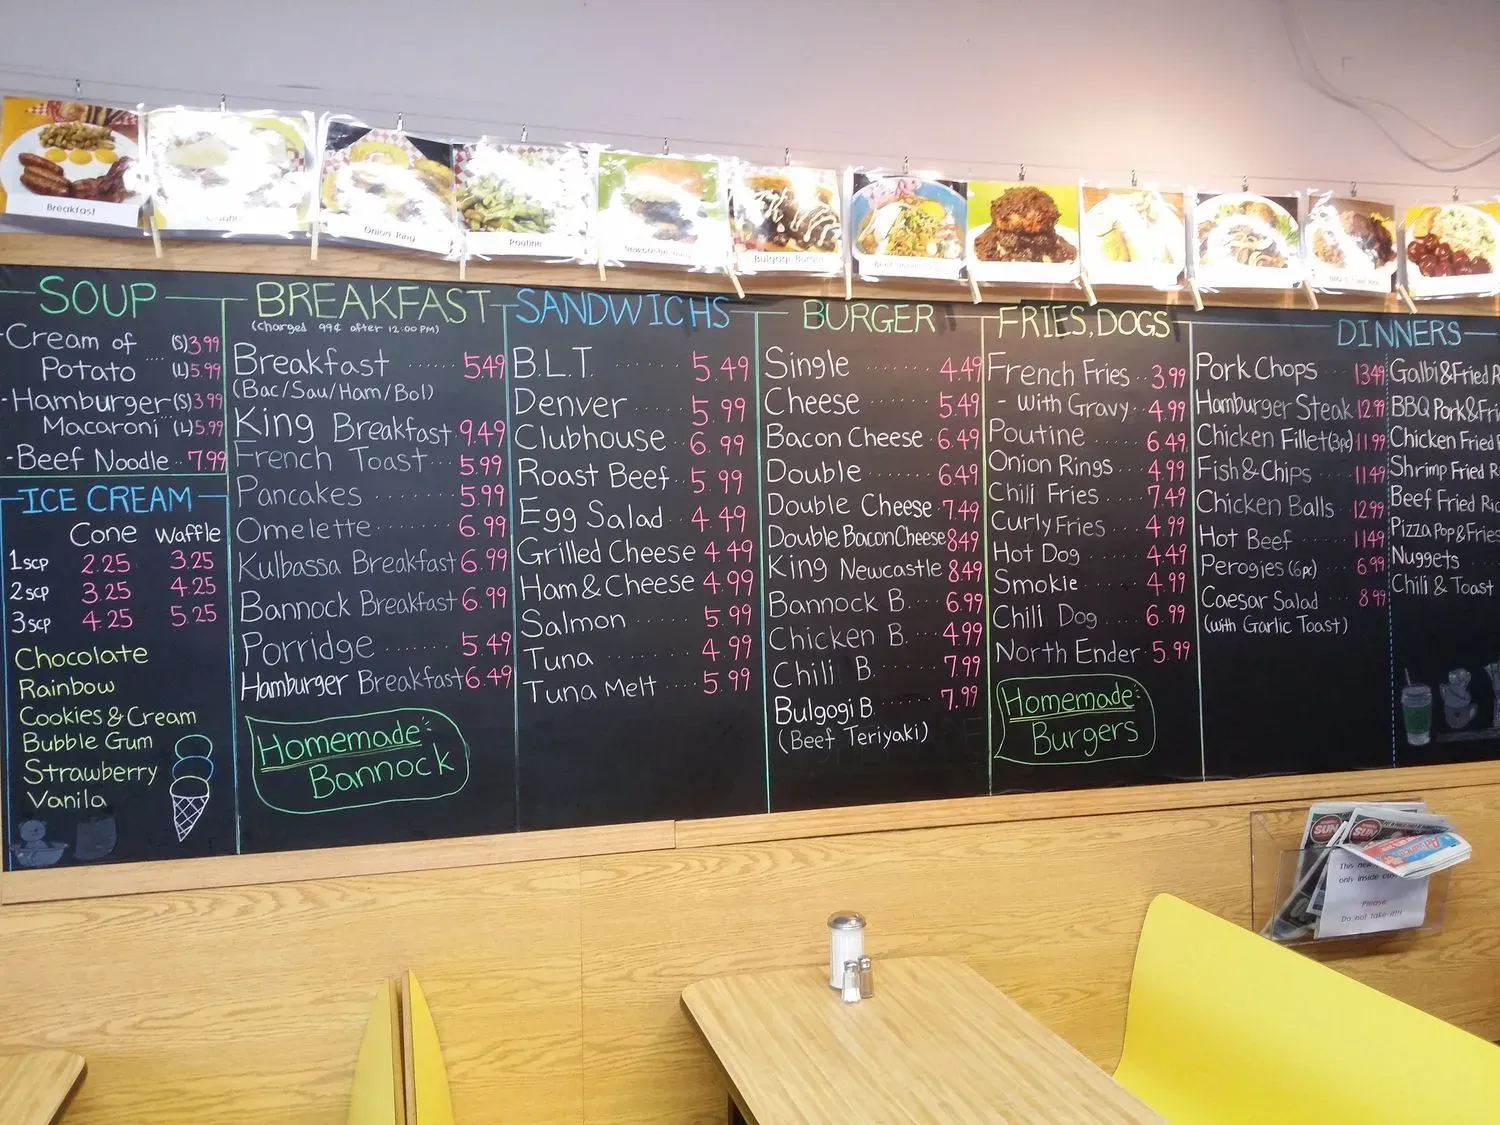 Breakfast
Onion Ring
Poutine
Bulgogi Burger
SOUP
-Cream of Potato .... (S)3.99
(L)5.99
-Hamburger Macaroni (S)3.99
(L)5.99
-Beef Noodle .. 7.99
ICE CREAM
Cone Waffle
1scp 2.25 3.25
2scp 3.25 4.25
3scp 4.25 5.25
Chocolate
Rainbow
Cookies & Cream
Bubble Gum
Strawberry
Vanila
BREAKFAST
(charged 99¢ after 12:00 PM)
Breakfast ...... 5.49
(Bac/Sau/Ham/Bol)
King Breakfast. 9.49
French Toast ... 5.99
Pancakes ....... 5.99
Omelette ....... 6.99
Kulbassa Breakfast 6.99
Bannock Breakfast 6.99
Porridge ....... 5.49
Hamburger Breakfast 6.49
Homemade
Bannock
SANDWICHS
B.L.T. ....... 5.49
Denver ..... 5.99
Clubhouse .. 6.99
Roast Beef .. 5.99
Egg Salad .. 4.49
Grilled Cheese 4.49
Ham & Cheese 4.99
Salmon ...... 5.99
Tuna ........ 4.99
Tuna Melt .... 5.99
BURGER
Single ....... 4.49
Cheese ...... 5.49
Bacon Cheese . 6.49
Double ...... 6.49
Double Cheese . 7.49
Double Bacon Cheese 8.49
King Newcastle 8.49
Bannock B. ... 6.99
Chicken B. ... 4.99
Chili B. ...... 7.99
Bulgogi B. ..... 7.99
(Beef Teriyaki)
FRIES, DOGS
French Fries .. 3.99
- with Gravy .. 4.99
Poutine ...... 6.49
Onion Rings ... 4.99
Chili Fries .... 7.49
Curly Fries ... 4.99
Hot Dog ..... 4.49
Smokie ..... 4.99
Chili Dog .... 6.99
North Ender . 5.99
Homemade
Burgers
DINNERS
Pork Chops ... 13.49
Hamburger Steak. 12.99
Chicken Fillet (3pc) 11.99
Fish & Chips .... 11.49
Chicken Balls .. 12.99
Hot Beef ...... 11.49
Perogies (6pc) .... 6.99
Caesar Salad .... 8.99
(with Garlic Toast)
Galbi & Fried R
BBQ Pork & Fri
Chicken Fried R
Shrimp Fried R
Beef Fried Ric
Pizza Pop & Fries
Nuggets
Chili & Toast
SUN
SUN
This new
only inside
Please
Do not take it!!!